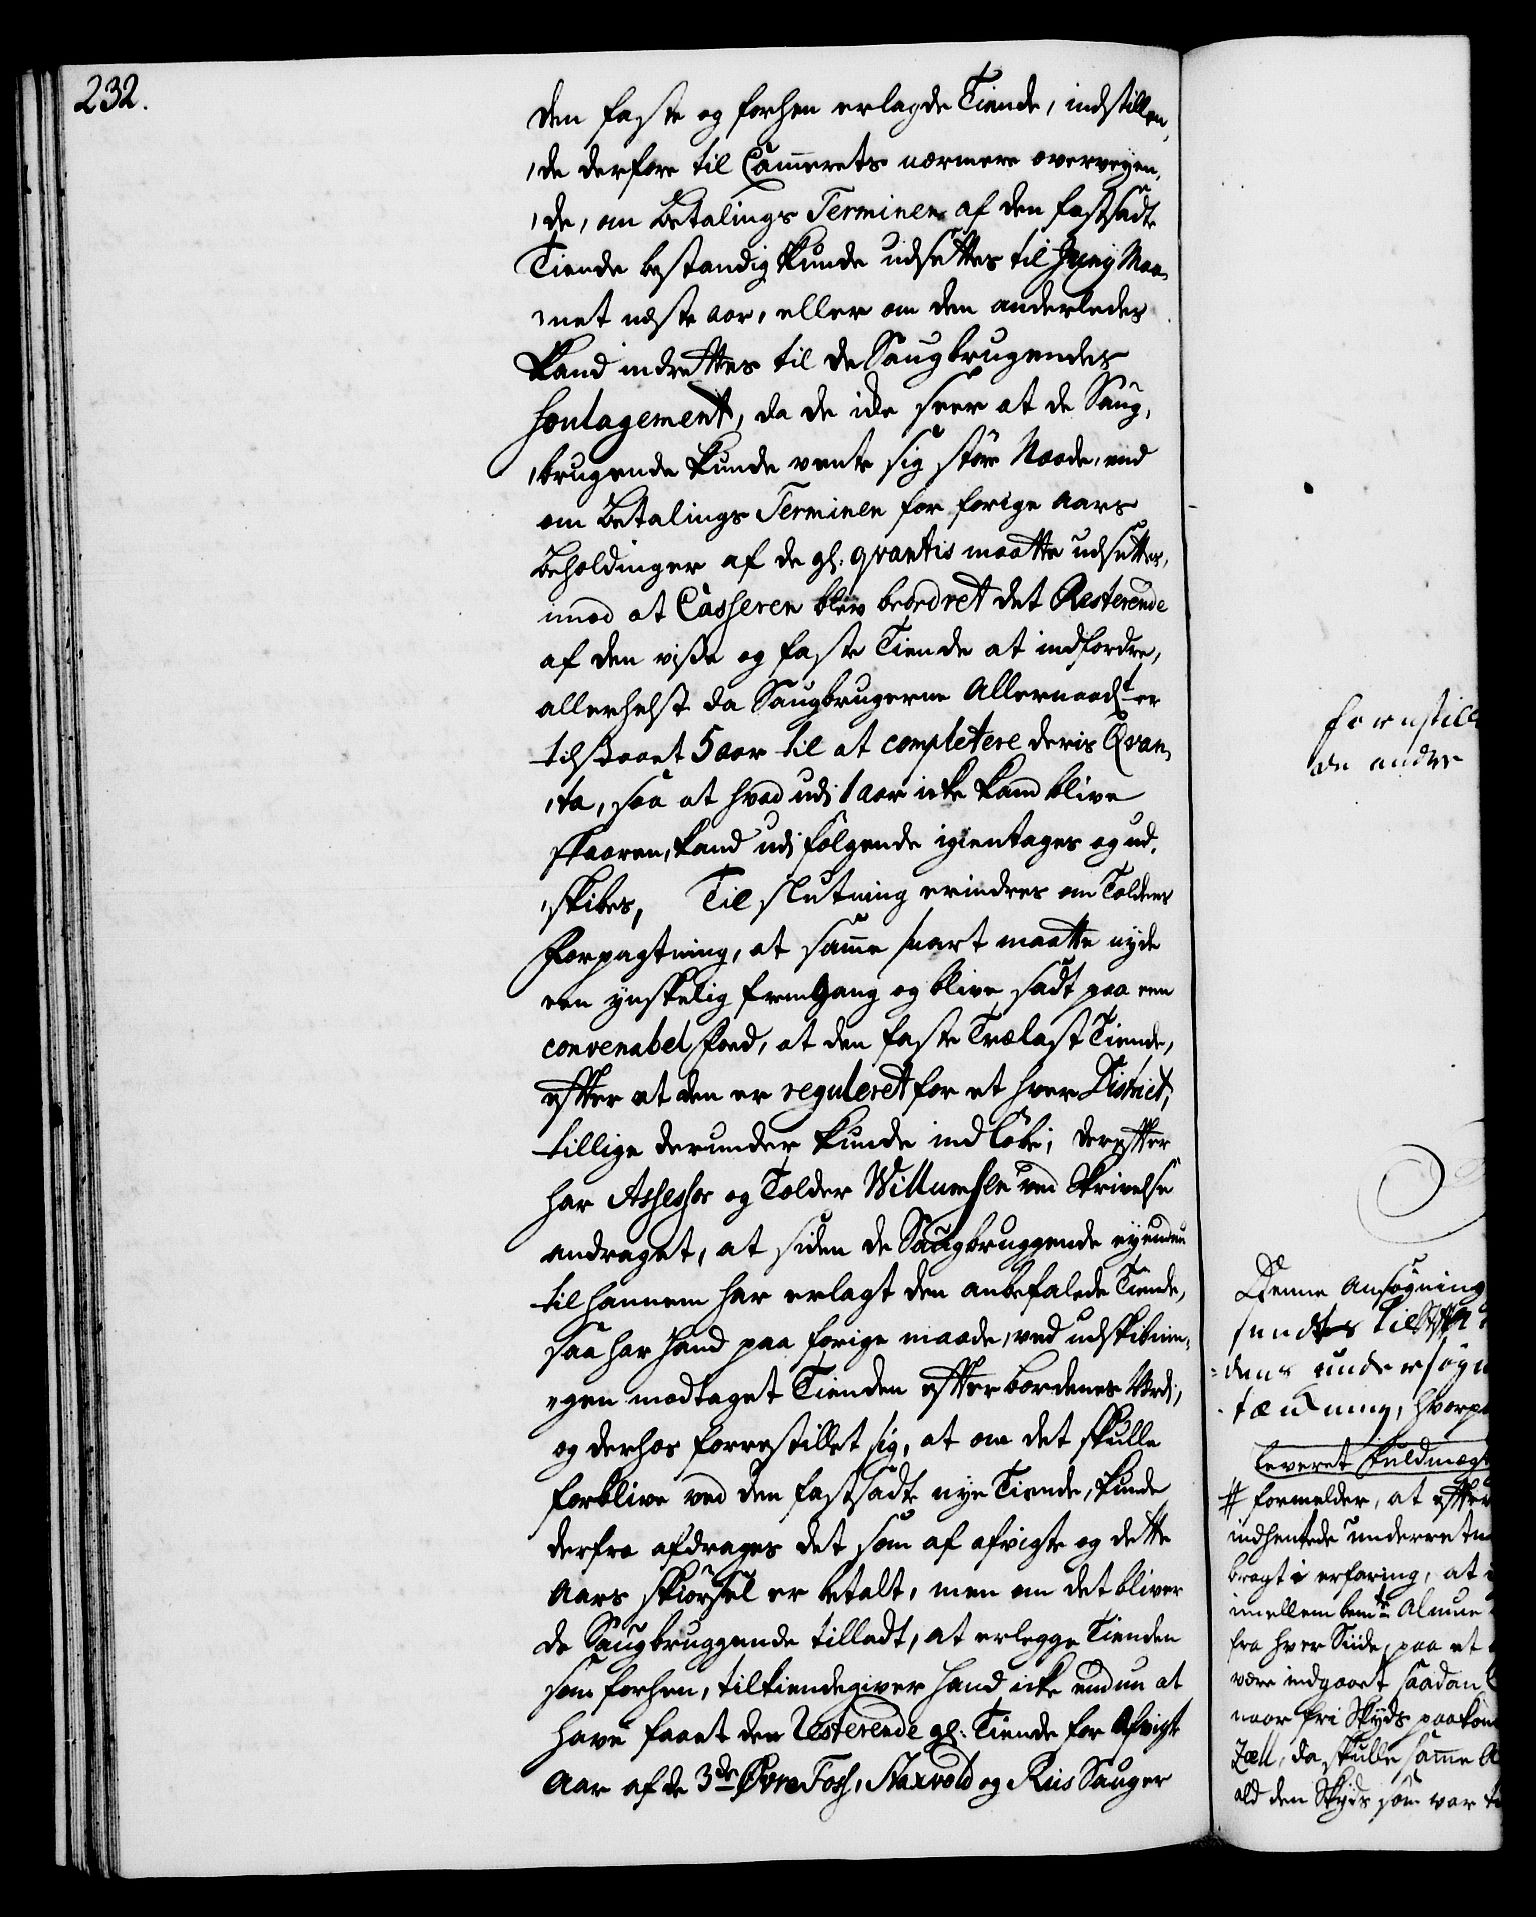 232.
den faste og forhen erlagde Tiende, indstillen,
,de derfore til Cammerets nærmere overveyen,
,de, om Betalings Terminen af den fastsadte
Tiende bestandig kunde udsættes til Junij Maa,
,net næste aar, eller om den anderledes
kand indrettes til de Saugbrugendes
Soulagement, da de icke seer at de Saug,
,brugende kunde vente sig større Naade, end
om Betalings Terminen for forige Aars
Beholdinger af de gl: qvantis maatte udsættes,
imod at Casseren blev beordret det Resterende
af den visse og faste Tiende at indfordre,
allerhelst da Saugbrugerne Allernaadt er
tilstaaet 5 aar til at completere deris Qvan,
,ta, saa at hvad udi 1 aar icke kand blive
skaaren, kand udi følgende igientages og ud,
,skibes, Til slutning erindres om Toldens
Forpagtning, at samme snart maatte nyde
een ynskelig fremgang og blive sadt paa een
convenabel Foed, at den faste Trælast Tiende,
efter at den er reguleret for et hver District,
tillige derunder kunde indløbe; derefter
har Assessor og Tolder Willumsen ved Skrivelse
andraget, at siden de Saugbruggende eyendnu
til hannem har erlagt den anbefalede Tiende,
saa har hand paa forige maade, ved udskibnin,
,gen modtaget Tienden efter bordenes Værdi,
og derhos forrestillet sig, at om det skulle
forblive ved den fastsadte nye Tiende, kunde
derfra afdrages det som af afvigte og dette
Aars skiørsel er betalt, men om det bliver
de Saugbruggende tilladt, at erlegge Tienden
som forhen, tilkiendegiver hand icke endnu at
have faaet den Resterende gl: Tiende for Afvigte
Aar af de 3de Øvre Foss, Haxvold og Riis Sauger
forestill
de andre
Denne Ansøgning
sendtes til
dens undersøgn
tænkning, hvorp
leveret fuldmægt
# formelder, at efter
indhentede underretn
bragt i erfaring, at
imellem bemte Almue
fra hver Siide, paa et
være indgaaet saadan
naar fri Skyds paakom
Zoll, da skulle samme A
ald den Skyds som var